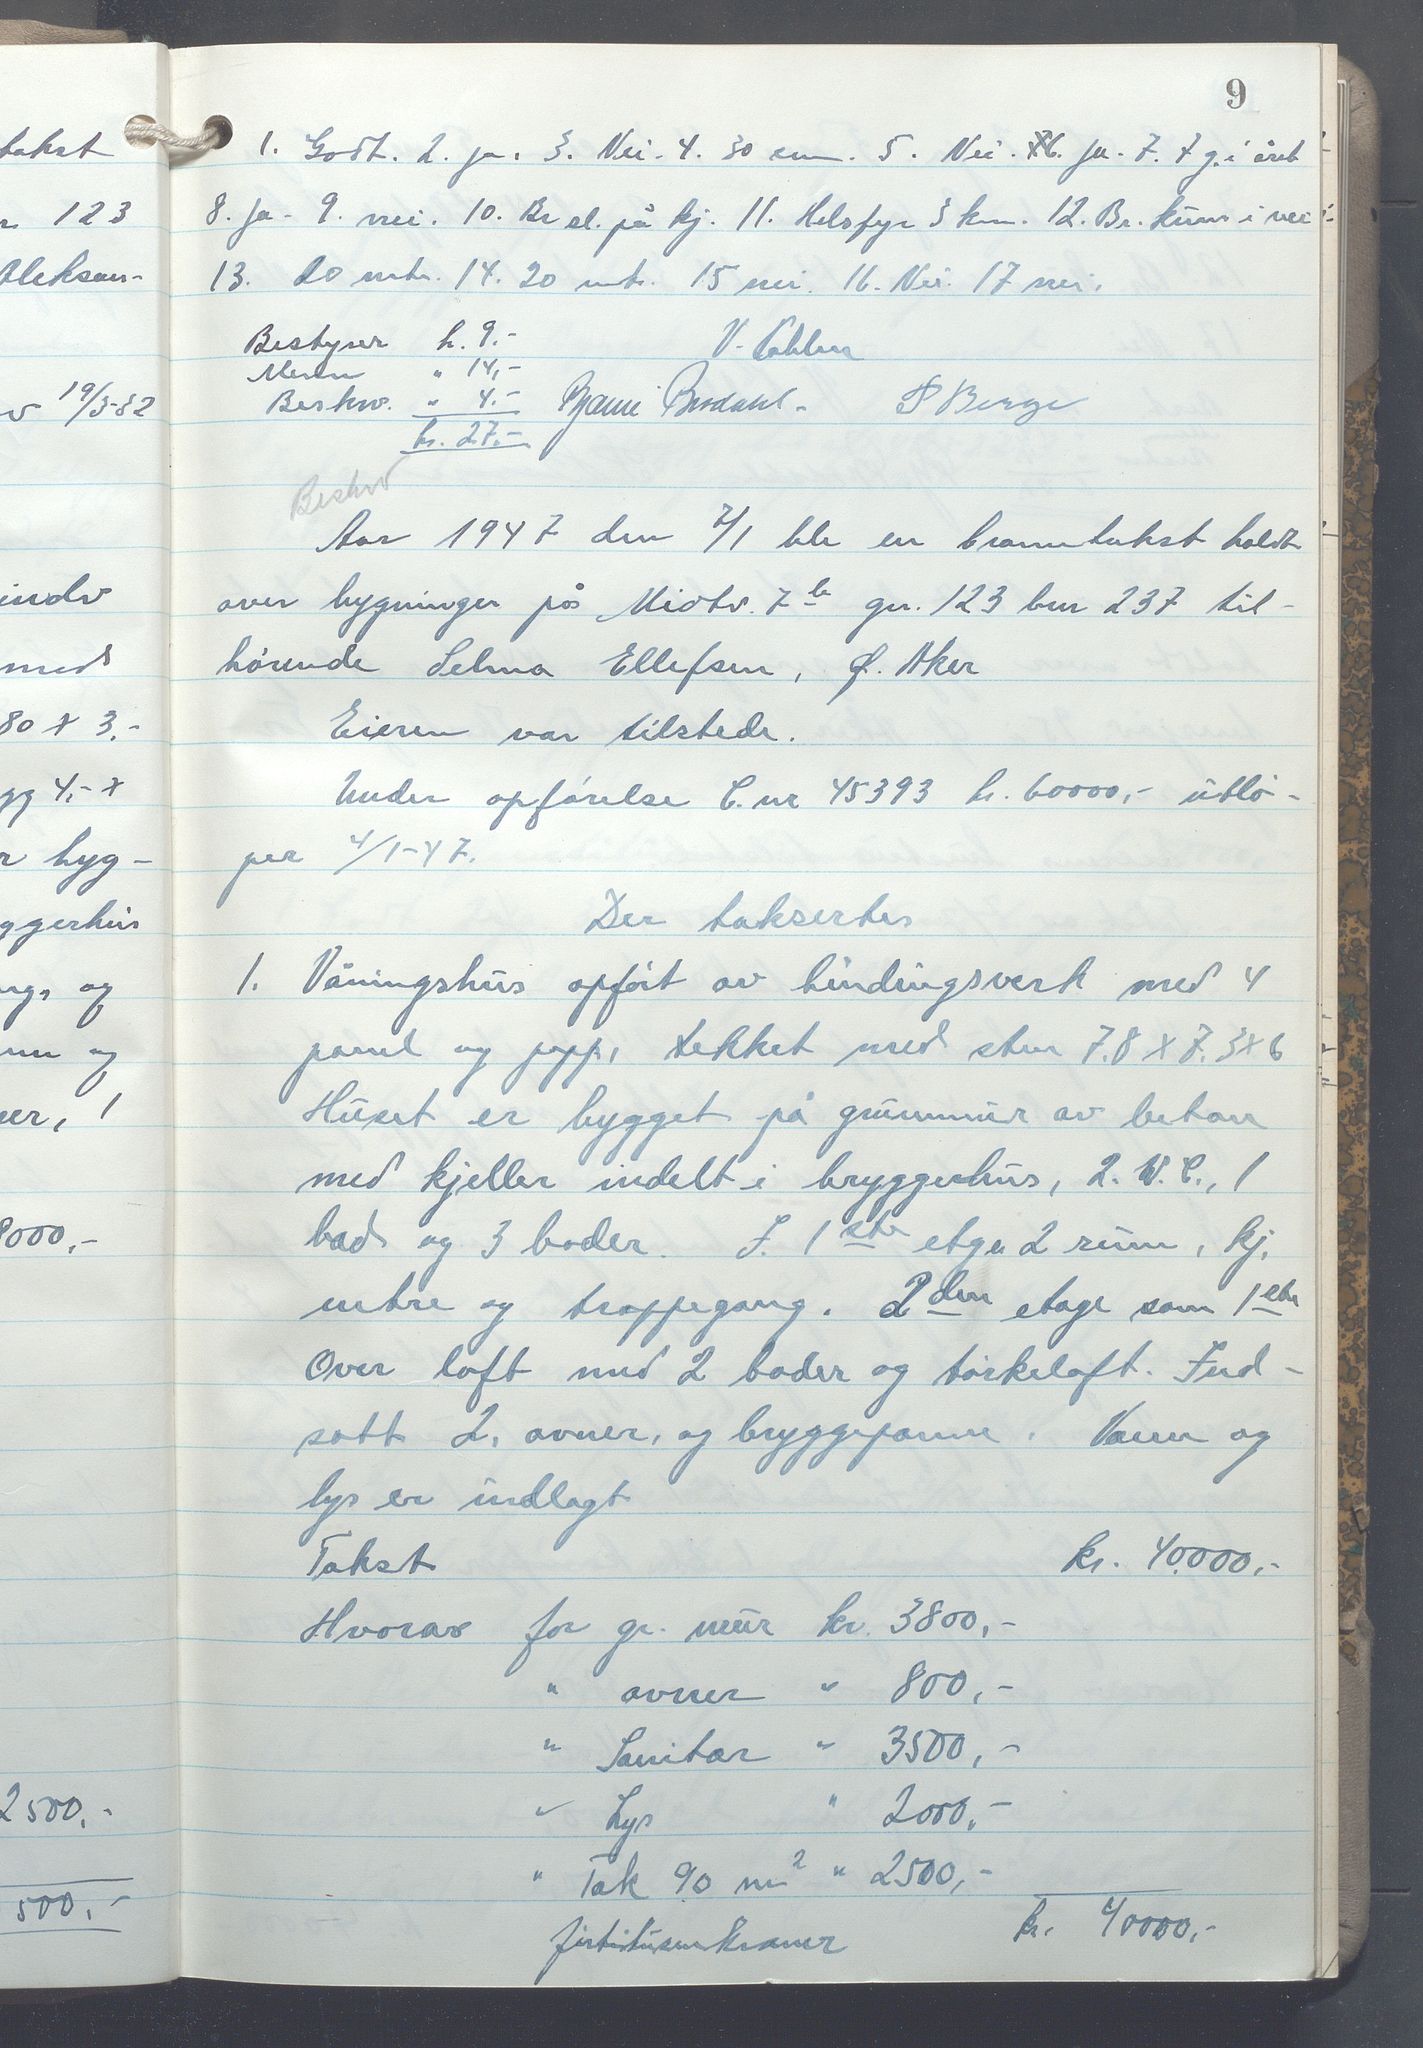 takst
123
Aleksan-
19/5-32
indv
med
80 x 3,-
gg 4,- x
r byg-
yggerhus
og
og
er, 1
000,-
2500,-
500,-
9
1. Godt. 2. ja. 3. Nei. 4. 30 cm. 5. Nei. 6. Ja. 7. 7 g. i året
8. Ja. 9. nei. 10. Br sl. på kj. 11. Helsfyr 3 km. 12. Br. kum i vei
13. 20 mtr. 14. 20 mtr. 15 nei. 16. Nei. 17 nei.
Bestyrer k. 9.-
Menn " 14,-
Beskriv. " 4.-
kr. 27.-
V.
Bjarne Brodahl. Berge
Beskriv
Aar 1947 den 7/1 ble en branntakst holdt
over bygninger på Midtv. 7b gr. 123 bnr 237 til-
hørende Selma Ellefsen, Ø. Aker
Eieren var tilstede.
Under opførelse C. nr 45393 kr. 60000,- utlø-
per 4/1-47.
Der taksertes
1. Våningshus opført av bindingsverk med 4
panel og papp, tekket med sten 7.8 x 7.3 x 6
Huset er bygget på grunnmur av beton
med kjeller indelt i bryggerhus, 2. W.C., 1
bad og 3 boder. I 1ste etge 2 rum, kj.
entre og trappegang. 2den etage som 1ste
Over loft med 2 boder og tørkeloft. Ind-
satt 2, ovner, og bryggepanne. Vann og
lys er indlagt
Takst kr. 40.000,-
Hvorav for gr. mur kr. 3800,-
" ovner " 800,-
" Sanitær " 3500,-
" Lys " 2000,-
" Tak 90 m² " 2500,-
kr. 40000,-
førtitusenkroner